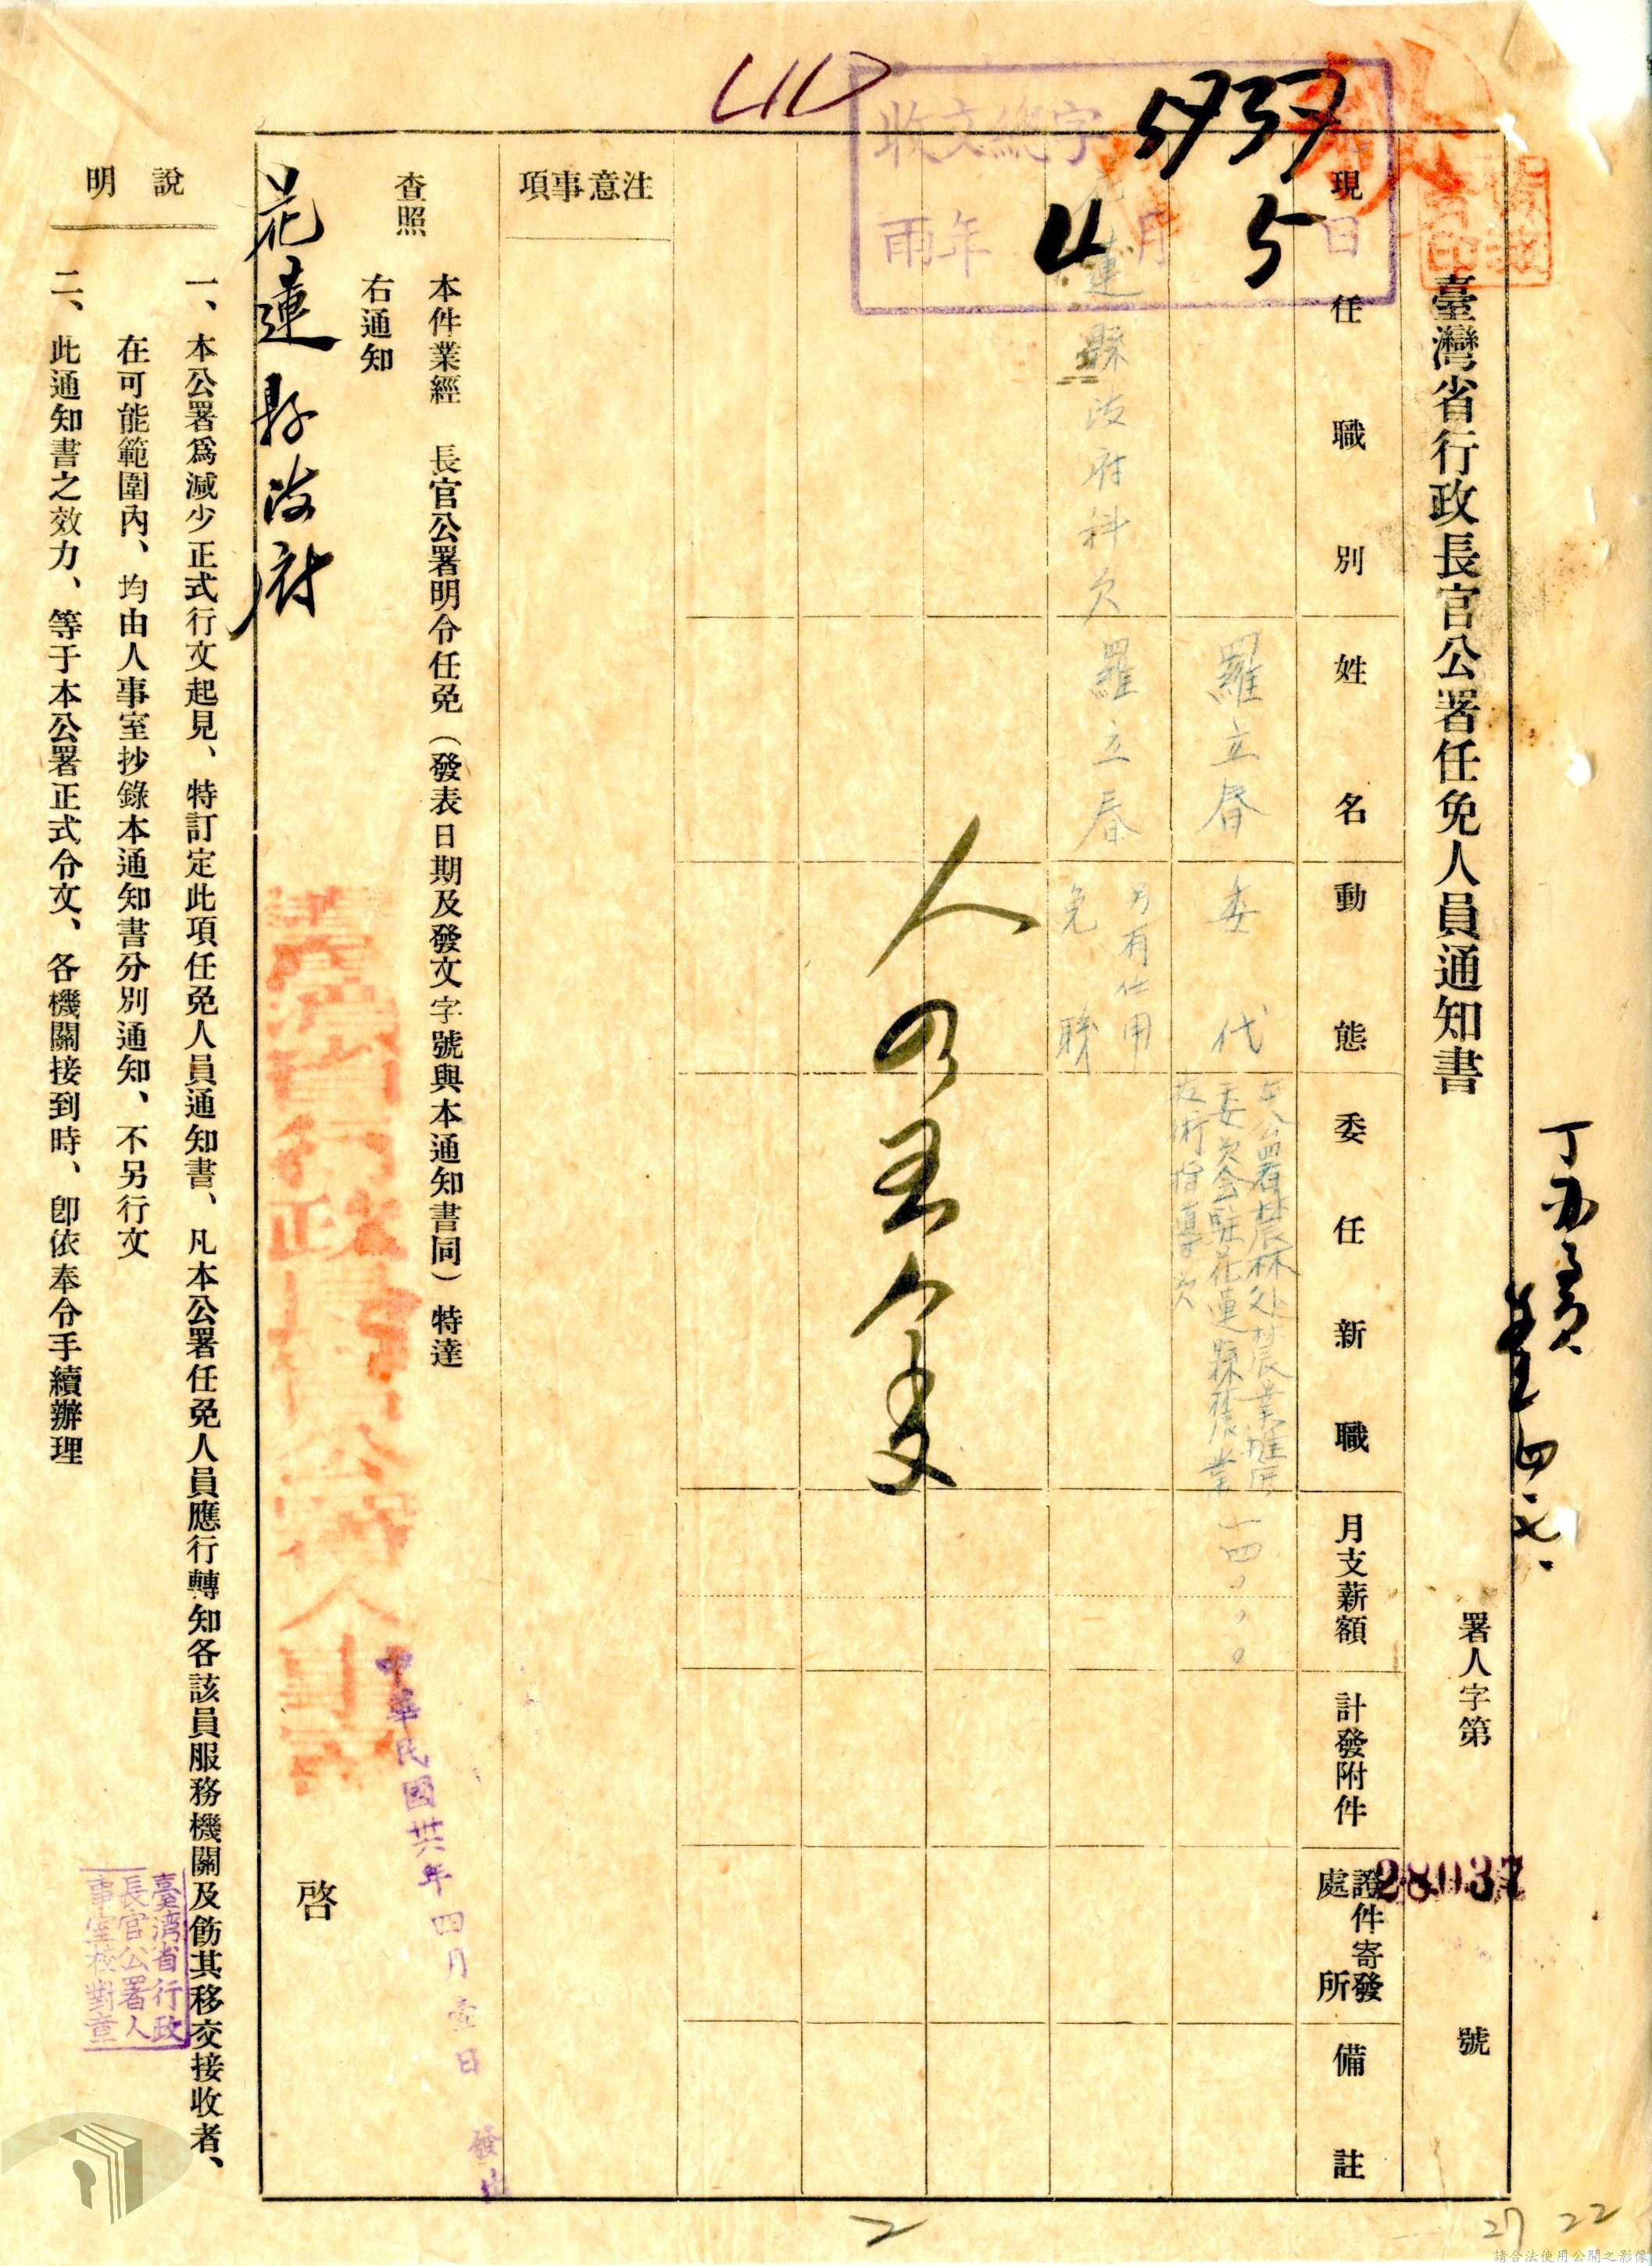 臺灣省行政長官公署任免人員通知書
署人字第 28037 號
收文總字 5737
年 4 月 5 日
現任職別
姓名
動態
委任新職
月支薪額
計發附件
證件寄發處所
備註
羅立春
委代
本公署農林處農業推廣
委員會駐花蓮縣農業
技術指導員
一四〇〇〇
花蓮縣政府科員
羅立春
另有任用
免職
注意事項
本件業經 長官公署明令任免(發表日期及發文字號與本通知書同)特達
查照
右通知
花蓮縣政府
臺灣省行政長官公署人事室
啓
中華民國卅六年四月壹日發出
說明
一、本公署爲減少正式行文起見、特訂定此項任免人員通知書、凡本公署任免人員應行轉知各該員服務機關及飭其移交接收者、
在可能範圍內、均由人事室抄錄本通知書分別通知、不另行文
二、此通知書之效力、等于本公署正式令文、各機關接到時、卽依奉令手續辦理
臺灣省行政
長官公署人
事室校對章
2
27 22
請合法使用公開之影像